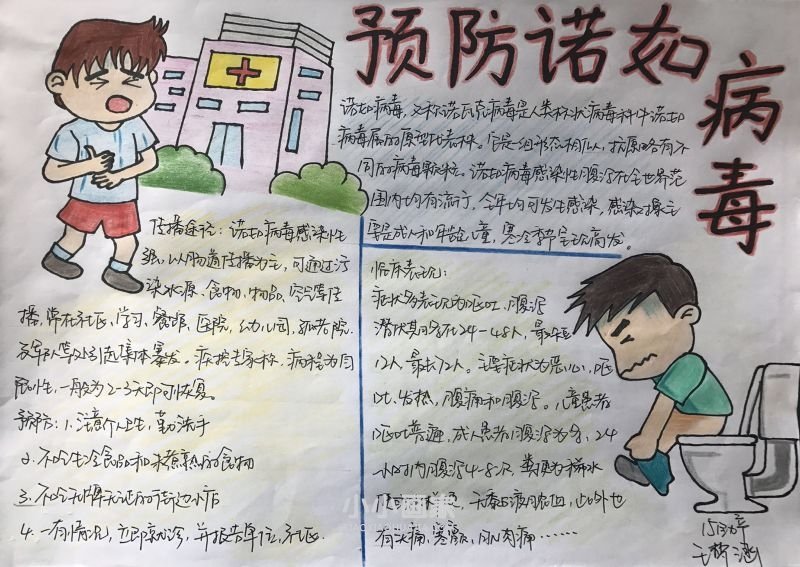 预防诺如病毒
诺如病毒,又称诺瓦克病毒是人类杯状病毒科中诺如
病毒属的原型代表株。它是一组形态相似、抗原略有不
同的病毒颗粒。诺如病毒感染性腹泻在全世界范
围内均有流行,全年均可发生感染,感染对象主
要是成人和学龄儿童,寒冷季节呈现高发。
传播途径:诺如病毒感染性
强,以肠道传播为主,可通过污
染水源、食物、物品、空气等传
播,常在社区、学习、餐馆、医院、幼儿园、孤老院、
及军队等处引起集体暴发。疾控专家称,病程为自
限性,一般为2-3天即可恢复。
预防:1、注意个人卫生,勤洗手
2、不吃生冷食品和未煮熟的食物
3、不吃无牌无证的街边小店
4、一有情况,立即就诊,并报告单位,社区.
临床表现:
症状多表现为呕吐、腹泻
潜伏期多在24-48人,最短
12人,最长72人。主要症状为恶心,呕
吐、发热,腹痛和腹泻。儿童患者
呕吐普遍,成人患者腹泻为多,24
小时内腹泻4-8次,粪便为稀水
便
无黏液脓血,此外也
有头痛,寒颤,肌肉痛……
小小画家